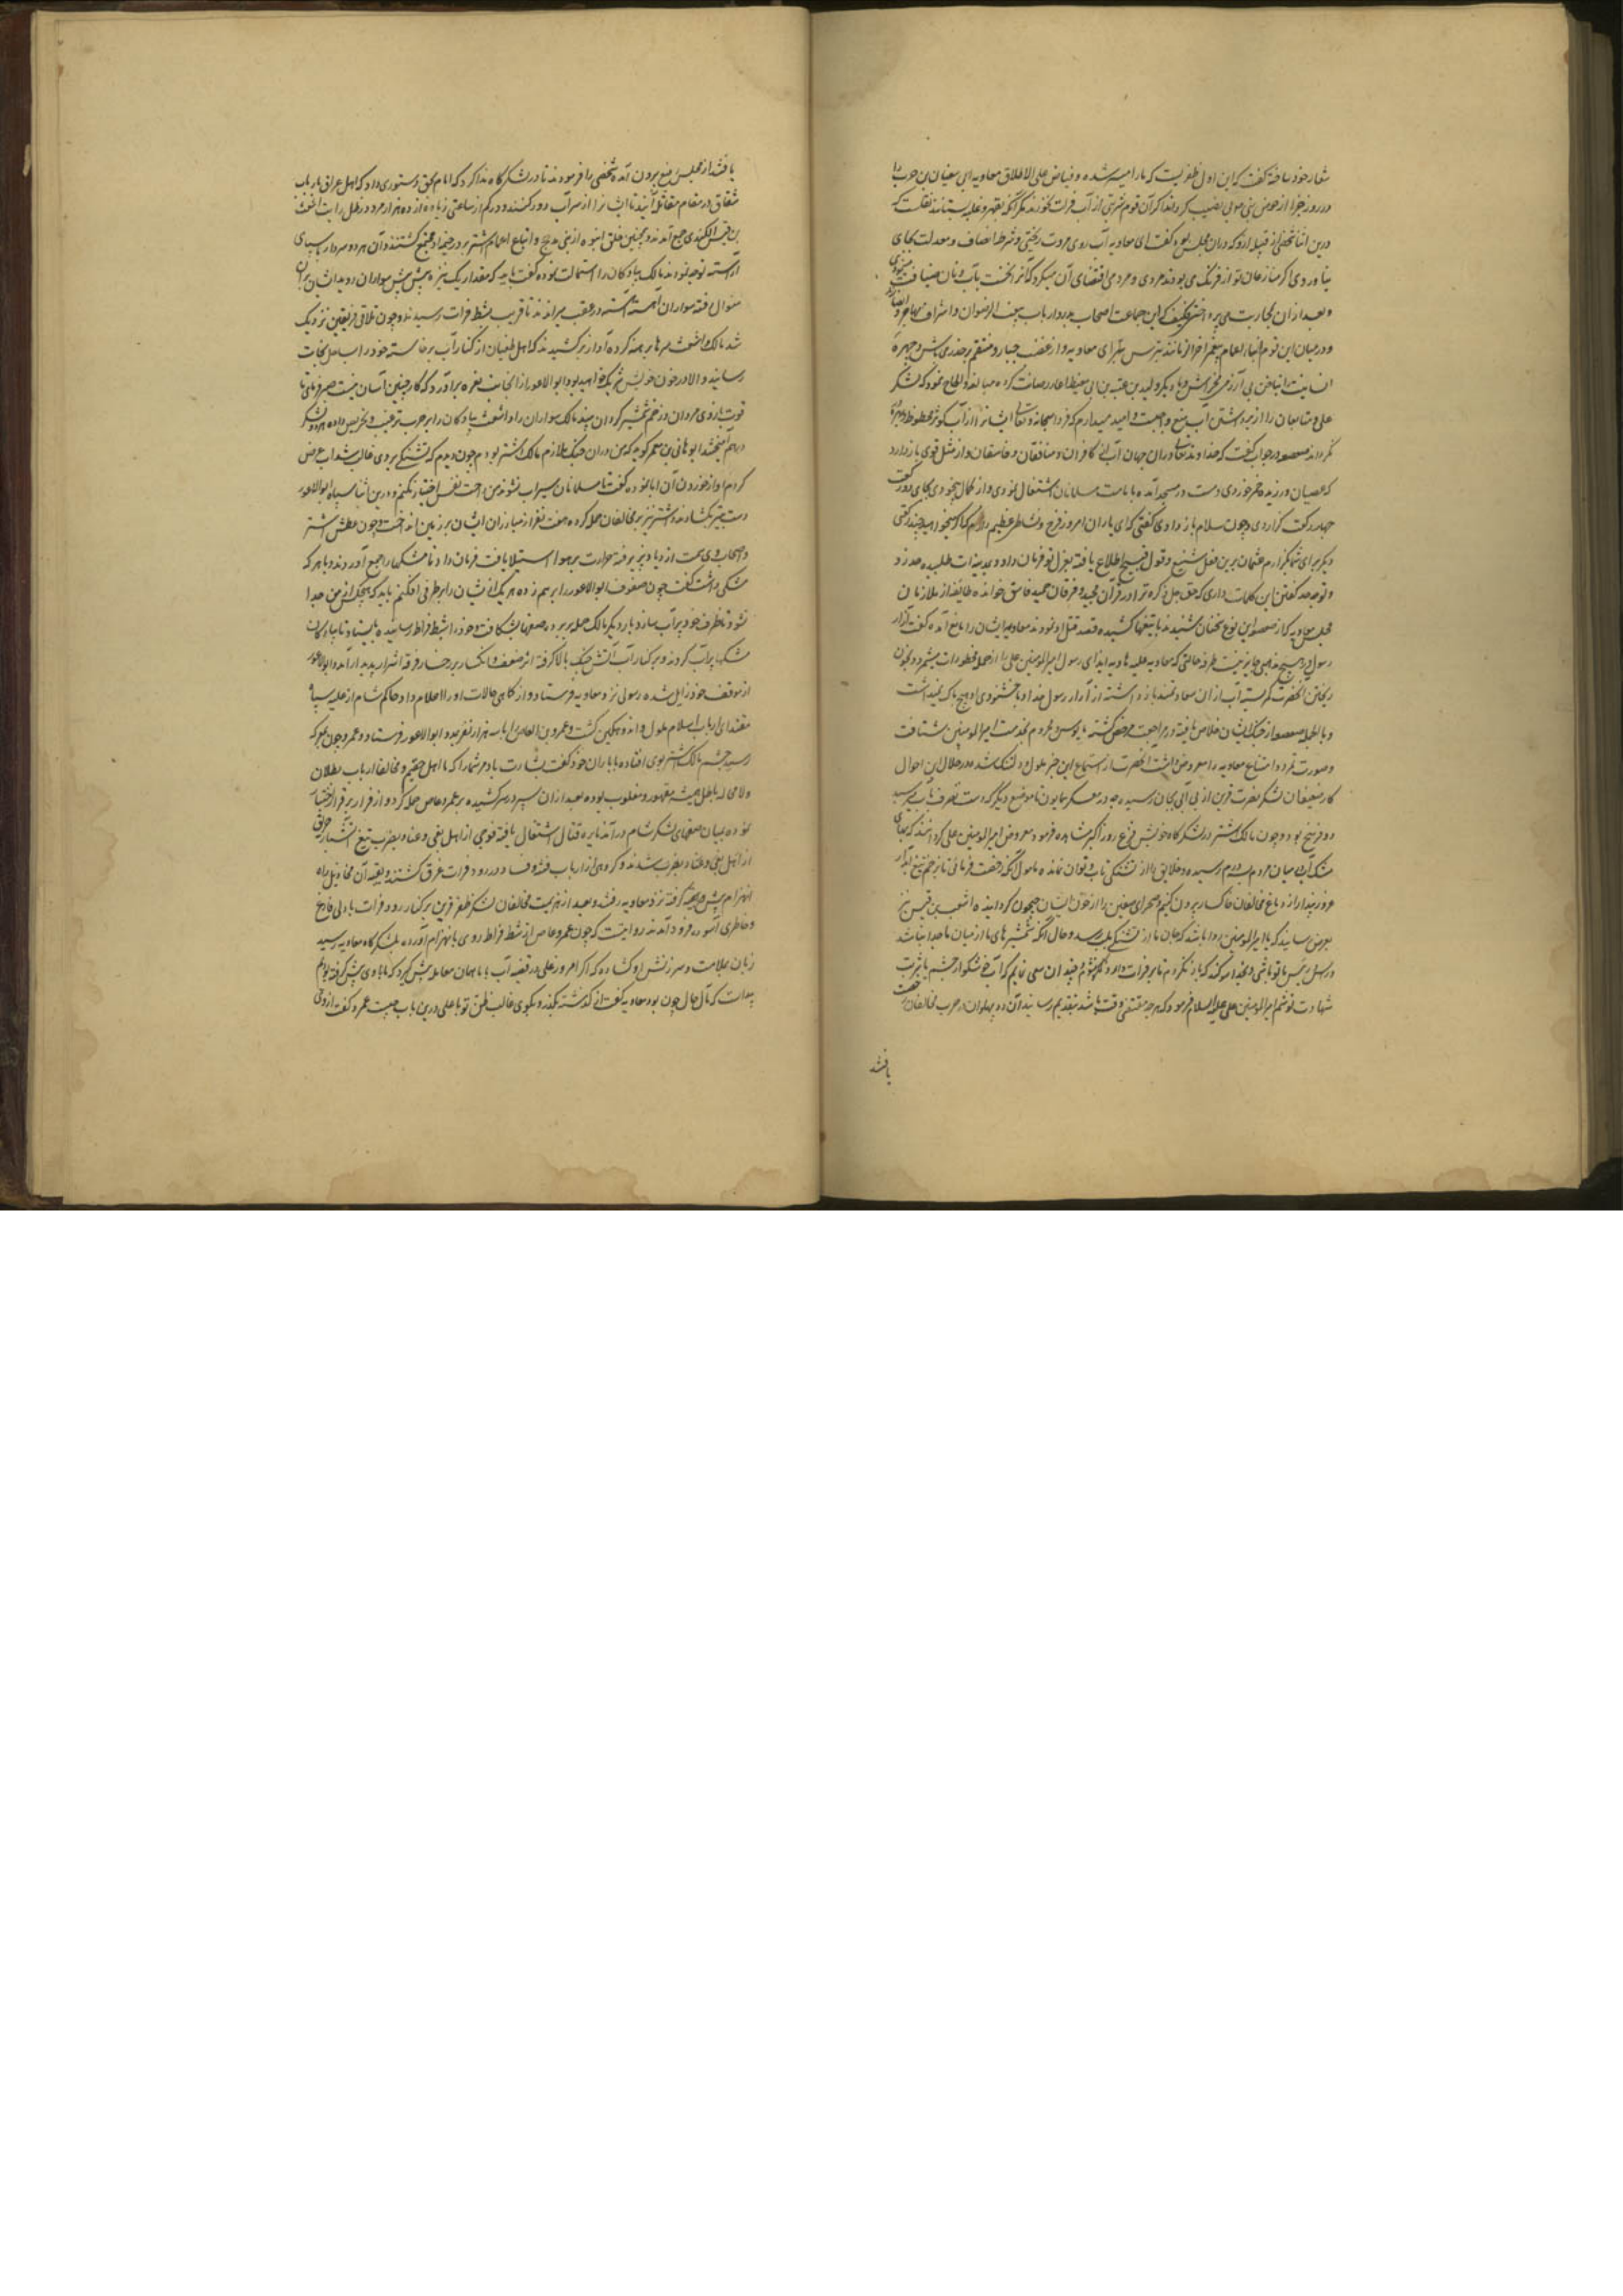 شعار خود ساخته گفت که این اول ظفریست که ما را میسر شده و فیاض علی الاطلاق معاویه ابی سفیان بن حرب را
در روز جزا از حوض نبی مولی نصیب کرداند اگر آن قوم شربتی از آب فرات بخورند مگر آنکه بقهر و غلبه بستانند نقلست که
درین اثنا شخصی از قبیله ازد که در آن مجلس بود گفت ای معاویه آب روی مروت ریختی و شرط انصاف و معدلت بجای
نیاوردی اگر منازعان تو از فرنگ می بودند مردی و مردمی اقتضای آن میکرد که آنرا نخست بآب و نان ضیافت میکردی
و بعد از آن بمحاربت می پرداختی فکیف که این جماعت اصحاب بدر و ارباب بیعت الرضوان و اشراف مهاجر و انصارند
و در میان این قوم ابنای اعمام پیغمبر آخر الزمانند بترس بترس ای معاویه و از غضب جبار منتقم بر حذر می باش و چهره
انسانیت را بناخن بی آزرمی مخراش و بار دیگر ولید بن عقبه بن ابی معیط اعادت کرده مبالغه و الحاح نمود که لشکر
علی و متابعان او را از برداشتن آب منع واجبست و امید میدارم که فردا سبحانه و تعالی ایشانرا از آب کوثر محظوظ و بهره‌ور
نگرداند صعصعه در جواب گفت که خداوند تعالی در آن جهان آب از کافران و منافقان و فاسقان و از مثل توی باز دارد
که عصیان ورزیده خمر خوردی و مست در مسجد آمده بامامت مسلمانان اشتغال نمودی و از کمال بیخودی بجای دو رکعت
چهار رکعت گزاردی و چون سلام باز دادی گفتی که ای یاران امروز فرح و نشاط عظیم دارم اگر میخواهید چند رکعتی
دیگر برای شما بگزارم عثمان برین فعل شنیع و قول قبیح اطلاع یافته بعزل تو فرمان داد و بمدینه ات طلبیده حد زد
و توجه حد گفتن این کلمات داری که حق جل ذکره ترا در قرآن مجید و فرقان حمید فاسق خوانده طایفه از ملازمان
مجلس معاویه که از صعصعه این نوع سخنان شنیدند با تیغها کشیده قصد قتل او نمودند معاویه ایشان را مانع آمده گفت آزار
رسول در هیچ مذهبی جایز نیست
ریختن
و بالجمله صعصعه از چنگ ایشان خلاص یافته در مراجعت مرخص گشته مایوس و محروم بخدمت امیرالمومنین شتافت
و صورت تمرد و امتناع معاویه را معروض داشت آنحضرت از استماع این خبر ملول و دلتنگ شد و در خلال این احوال
کار ضعیفان لشکر نصرت قرین از بی آبی بجان رسیده
و چون مالک اشتر در لشکرگاه خویش فزع روز اکبر مشاهده فرمود معروض امیرالمومنین علی گردانید که بهای
مشک آب میان مردم بسه درم رسیده و خلایق را از تشنگی تاب و توان نمانده مامول آنکه رخصت فرمائی تا بزخم تیغ آبدار
غرور پندار از دماغ مخالفان خاکسار بیرون کنیم و صحرای صفین را از خون ایشان جیحون گردانیده اشعث بن قیس نیز
بعرض رسانید که یا امیرالمومنین روا باشد که جان ما از تشنگی بلب رسد و حال آنکه شمشیرهای ما از میان ما جدا نباشد
شهادت نوشم امیرالمومنین علی علیه السلام فرمود که هر چه مقتضی وقت باشد بتقدیم رسانید آن دو پهلوان در حرب مخالفان رخصت
یافتند
یافتند از مجلس منیع بیرون آمده شخصی را فرمودند تا در لشکرگاه ندا کرد که امام بحق دستوری داد که اهل عراق با ارباب
شقاق در مقام مقاتله آیند تا ایشانرا از سر آب دور کنند و در کم از ساعتی زیاده از ده هزار مرد در ظل رایت اشعث
بن قیس الکندی جمع آمدند و همچنین خلق انبوه از بنی مذحج و اتباع اعمام اشتر بر در خیمه او مجتمع گشتند و آن هر دو سردار با سپاهی
آراسته توجه نمودند مالک پیادگان را استمالت نموده گفت باید که مقدار یک نیزه پیش پیش سواران روید ایشان بر آن
منوال رفته سواران آهسته آهسته در عقب میراندند تا قریب بشط فرات رسیدند و چون تلاقی فریقین نزدیک
شد مالک و اشعث سرها برهنه کرده آواز برکشیدند که اهل طغیان از کنار آب برخاسته خود را بساحل نجات
رسانید و الا در خون خویش شریک خواهید بود ابو الاعور از آنجانب نعره برآورد که کار چنین آسان نیست صبر فرمائی تا
قوت بازوی مردان و زخم شمشیر گردان بینید مالک سواران را و اشعث پیادگان را بر حرب ترغیب و تحریص داده هر دو لشکر
درهم آمیختند ابو هانی بن معمر گوید که من در آن جنگ ملازم مالک اشتر بودم چون دیدم که تشنگی بر وی غالب شد آب عرض
کردم او از خوردن آن ابا نموده گفت تا مسلمانان سیراب نشوند من راحت نفس اختیار نکنم و درین اثنا سپاه ابو الاعور
دست به تیر بگشادند و اشتر نیز بر مخالفان حمله کرده هفت نفر از مبارزان ایشان بر زمین انداخت و چون عطش اشتر
و اصحاب وی سمت ازدیاد پذیرفته حرارت بر هوا استیلا یافت فرمان داد تا مشکها را جمع آوردند و با هر که
مشکی داشت گفت چون صفوف ابو الاعور را برهم زده هر یک از ایشان را بطرفی افکنم باید که هیچکس از من جدا
نشود تا ظرف خود پر آب سازد و بار دیگر مالک حمله برده صفها بشکافت و خود را بشط فرات رسانیده بایستاد تا پیادگان
مشکها پر آب کردند و بر کنار آب آتش جنگ بالا گرفته اثر ضعف و انکسار بر رخسار فرقه اشرار پدید آمد و ابو الاعور
از موقف خود زایل شده رسولی نزد معاویه فرستاد و از کماهی حالات او را اعلام داد حاکم شام از غلبه سپاه
مقتدای ارباب اسلام ملول و اندوهگین گشت و عمرو بن العاص را با سه هزار نفر بمدد ابو الاعور فرستاد و عمرو چون بمعرکه
رسید چشم مالک اشتر بوی افتاده با یاران خود گفت بشارت باد مر شما را که ما اهل حقیم و مخالفا ارباب بطلان
و لا محاله باطل همیشه مقهور و مغلوب بوده بعد از آن سپر در سر کشیده بر عمرو عاص حمله کرد و او فرار بر قرار اختیار
نموده بمیان صفهای لشکر شام در آمد نایره قتال اشتعال یافته فوجی از اهل بغی و عناد بضرب تیغ آتشبار حریق
و گروهی از ارباب فتنه و فساد در رود فرات غرق گشتند و بقیه آن مخاذیل راه
انهزام پیش گرفته نزد معاویه رفتند و بعد از هزیمت مخالفان لشکر ظفر قرین بر کنار رود فرات با دلی فارغ
و خاطری آسوده فرود آمدند روایتست که چون عمرو عاص از شط فرات روی بانهزام آورده بلشکرگاه معاویه رسید
زبان بملامت و سرزنش او گشاده که اگر امروز علی در قضیه آب با ما همان معامله پیش گیرد که ما با وی پیش گرفته بودیم
مآل حال چون بود معاویه گفت از گذشته بگذر و بگوی غالب ظن تو با علی درین باب چیست عمرو گفت